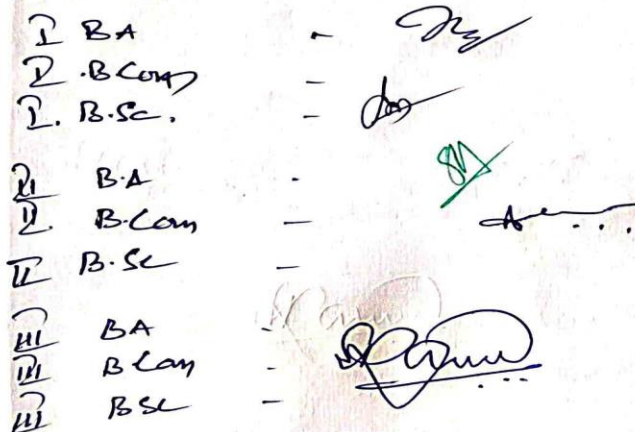 I BA -
I. B Com -
I. B.Sc. -
II B.A -
II. B.Com -
II B.Sc -
III BA -
III B Com -
III BSc -